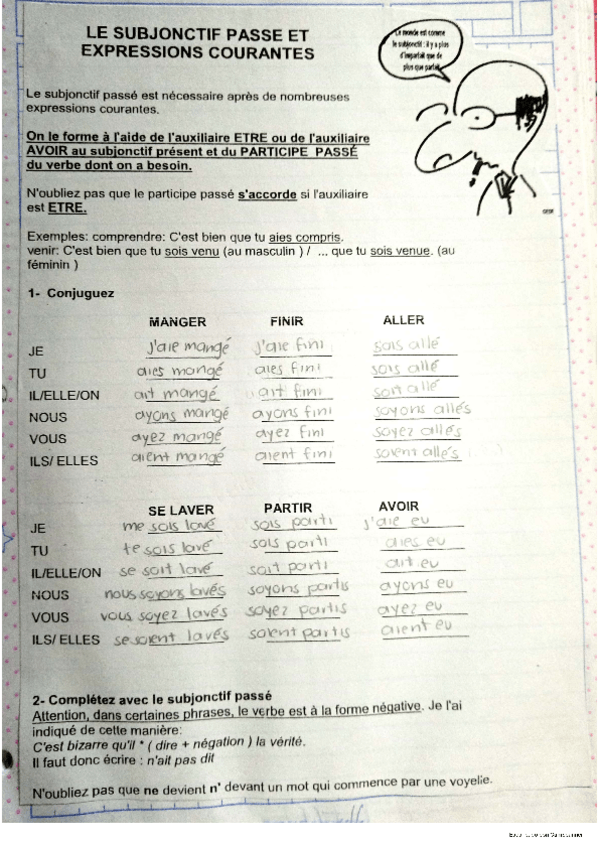 LE SUBJONCTIF PASSE ET
EXPRESSIONS COURANTES
Le monde est comme
le subjonctif : il y a plus
d'imparfait que de
plus que parfait.
Le subjonctif passé est nécessaire après de nombreuses
expressions courantes.
On le forme à l'aide de l'auxiliaire ETRE ou de l'auxiliaire
AVOIR au subjonctif présent et du PARTICIPE PASSÉ
du verbe dont on a besoin.
N'oubliez pas que le participe passé s'accorde si l'auxiliaire
est ETRE.
Exemples: comprendre: C'est bien que tu aies compris.
venir: C'est bien que tu sois venu (au masculin ) / ... que tu sois venue. (au
féminin )
1- Conjuguez
MANGER FINIR ALLER
JE j'aie mangé j'aie fini sois allé
TU aies mangé aies fini sois allé
IL/ELLE/ON ait mangé ait fini soit allé
NOUS ayons mangé ayons fini soyons allés
VOUS ayez mangé ayez fini soyez allés
ILS/ ELLES aient mangé aient fini soient allés
SE LAVER PARTIR AVOIR
JE me sois lavé sois parti j'aie eu
TU te sois lavé sois parti aies eu
IL/ELLE/ON se soit lavé soit parti ait eu
NOUS nous soyons lavés soyons partis ayons eu
VOUS vous soyez lavés soyez partis ayez eu
ILS/ ELLES se soient lavés soient partis aient eu
2- Complétez avec le subjonctif passé
Attention, dans certaines phrases, le verbe est à la forme négative. Je l'ai
indiqué de cette manière:
C'est bizarre qu'il * ( dire + négation ) la vérité.
Il faut donc écrire : n'ait pas dit
N'oubliez pas que ne devient n' devant un mot qui commence par une voyelle.